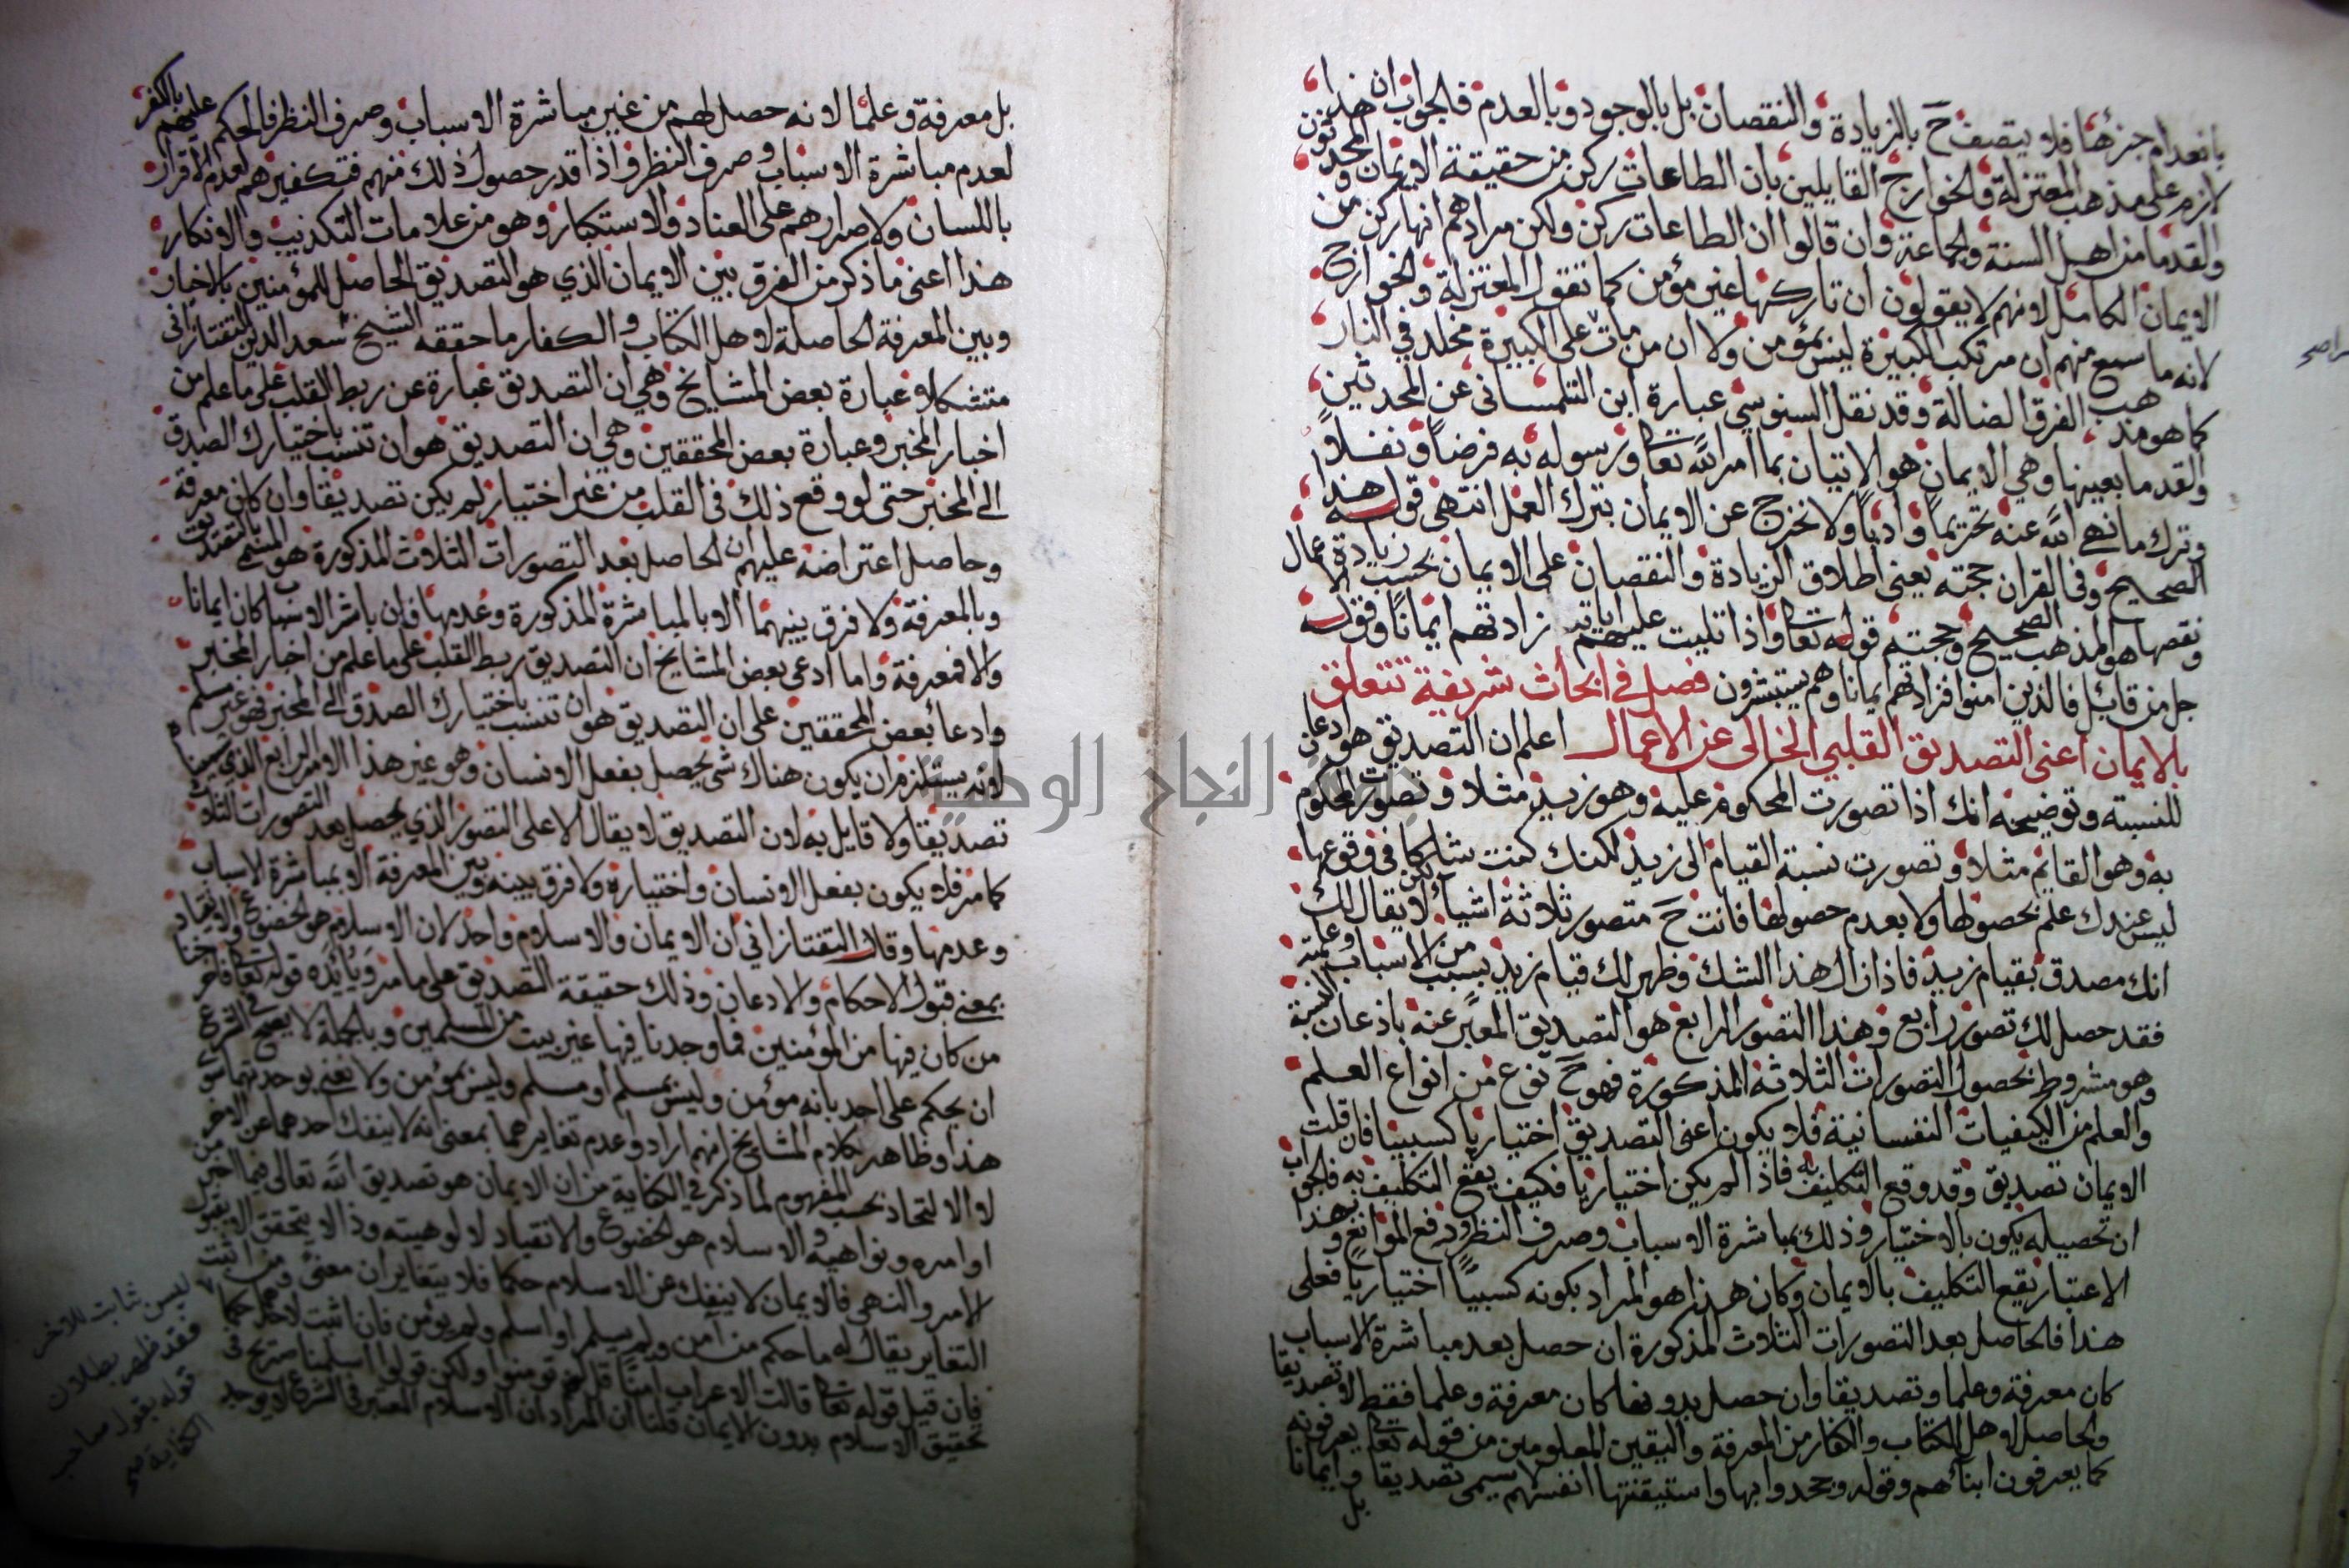 بانعدام جزئها فلا يتصف ح بالزيادة والنقصان بل بالوجود وبالعدم فالجواب ان هذا
لازم على مذهب المعتزلة والخوارج القايلين بان الطاعات ركن من حقيقة الايمان والمحدثون
والقدما من اهل السنة والجماعة وان قالوا ان الطاعات ركن ولكن مرادهم انها ركن من
الايمان الكامل لانهم لا يقولون ان تاركها غير مؤمن كما تقول المعتزلة والخوارج
لانه ما سمع منهم ان مرتكب الكبيرة ليس بمؤمن ولا ان من مات على الكبيرة مخلد في النار
كما هو مذهب الفرق الضالة وقد نقل السنوسي عبارة ابن التلمساني عن المحدثين
والقدما بعينها وهي الايمان هو الاتيان بما امر الله تعالى ورسوله به فرضا ونفلا
وترك ما نهى الله عنه تحريما وادبا ولا نخرج عن الايمان بترك العمل انتهى قوله هذا
الصحيح وفي القران حجته يعني اطلاق الزيادة والنقصان على الايمان بحسب زيادة الاعمال
ونقصها هو المذهب الصحيح وحجته قوله تعالى واذا تليت عليهم اياته زادتهم ايمانا وقوله
جل من قائل فالذين امنوا فزادتهم ايمانا وهم يستبشرون فصل في ابحاث شريفة تتعلق
بالايمان اعني التصديق القلبي الخالي عن الاعمال اعلم ان التصديق هو اذعان
للنسبة وتوضيحه انك اذا تصورت المحكوم عليه وهو زيد مثلا وتصورت المحكوم
به وهو القايم مثلا وتصورت نسبة القيام الى زيد لكنك كنت شاكا في وقوعها
ليس عندك علم بحصولها ولا بعدم حصولها فانت ح متصور ثلاثة اشياء لكن لا يقال لك
انك مصدق بقيام زيد فاذا زال هذا الشك وظهر لك قيام زيد بسبب من الاسباب وعلمته
فقد حصل لك تصور رابع وهذا التصور الرابع هو التصديق المعبر عنه باذعان النسبة
وهو مشروط بحصول التصورات الثلاثة المذكورة فهو ح نوع من انواع العلم
والعلم من الكيفيات النفسانية فلا يكون اعني التصديق اختياريا كسبيا فان قلت
الايمان تصديق وقد وقع التكليف به فاذا لم يكن اختياريا فكيف يقع التكليف به فالجواب
ان تحصيله يكون بالاختيار وذلك بمباشرة الاسباب وصرف النظر ورفع الموانع وبهذا
الاعتبار يقع التكليف بالايمان وكان هذا هو المراد بكونه كسبيا اختياريا فعلى
هذا فالحاصل بعد التصورات الثلاث المذكورة ان حصل بعد مباشرة الاسباب
كان معرفة وعلما وتصديقا وان حصل بدونها كان معرفة وعلما فقط لا تصديقا
والحاصل لاهل الكتاب والكفار من المعرفة واليقين المعلومين من قوله تعالى يعرفونه
كما يعرفون ابناءهم وقوله وجحدوا بها واستيقنتها انفسهم لا يسمى تصديقا وايمانا
بل
بل معرفة وعلما لانه حصل لهم من غير مباشرة الاسباب وصرف النظر فالحكم عليهم بالكفر
لعدم مباشرة الاسباب وصرف النظر واذا قدر حصول ذلك منهم فتكفيرهم لعدم الاقرار
باللسان ولاصرارهم على العناد والاستكبار وهو من علامات التكذيب والانكار
هذا اعني ما ذكر من الفرق بين الايمان الذي هو التصديق الحاصل للمؤمنين بالاختيار
وبين المعرفة الحاصلة لاهل الكتاب والكفار ما حققه الشيخ سعد الدين التفتازاني
متشكلا وعبارة بعض المشايخ وهي ان التصديق عبارة عن ربط القلب على ما علم من
اخبار المخبر وعبارة بعض المحققين وهي ان التصديق هو ان تنسب باختيارك الصدق
الى المخبر حتى لو وقع ذلك في القلب من غير اختيار لم يكن تصديقا وان كان معرفة
وحاصل اعتراضه عليهم ان الحاصل بعد التصورات الثلاث المذكورة هو المسمى بالتصديق
وبالمعرفة ولا فرق بينهما الا بالمباشرة المذكورة وعدمها فان باشر الاسباب كان ايمانا
والا فمعرفة واما ادعى بعض المشايخ ان التصديق ربط القلب على ما علم من اخبار المخبر
وادعاء بعض المحققين على ان التصديق هو ان تنسب باختيارك الصدق الى المخبر فهو غير مسلم
لانه يستلزم ان يكون هناك شي يحصل بفعل الانسان وهو غير هذا الامر الرابع الذي سميناه
تصديقا ولا قايل به لان التصديق لا يقال الا على التصور الذي يحصل بعد التصورات الثلاث
كما مر فلا يكون بفعل الانسان واختياره ولا فرق بينه وبين المعرفة الا بمباشرة الاسباب
وعدمها وقال التفتازاني ان الايمان والاسلام واحد لان الاسلام هو الخضوع والانقياد
بمعنى قبول الاحكام والاذعان وذلك حقيقة التصديق على ما مر ويؤيده قوله تعالى فاخرجنا
من كان فيها من المؤمنين فما وجدنا فيها غير بيت من المسلمين وبالجملة لا يصح في الشرع
ان يحكم على احد بانه مؤمن وليس بمسلم او مسلم وليس بمؤمن ولا نعني بوحدتهما سوى
هذا وظاهر كلام المشايخ انهم ارادوا عدم تغايرهما بمعنى انه لا ينفك احدهما عن الاخر
لا الاتحاد بحسب المفهوم لما ذكر في الكفاية من ان الايمان هو تصديق الله تعالى فيما اخبر من
اوامره ونواهيه والاسلام هو الخضوع والانقياد لالوهيته وذا لا يتحقق الا بقبول
الامر والنهي فالايمان لا ينفك عن الاسلام حكما فلا يتغايران معنى ومن اثبت
التغاير يقال له ما حكم من امن ولم يسلم او اسلم ولم يؤمن فان اثبت لاحدهما حكما
فان قيل قوله تعالى قالت الاعراب امنا قل لم تومنوا ولكن قولوا اسلمنا صريح في
تحقيق الاسلام بدون الايمان قلنا ان المراد ان الاسلام المعتبر في الشرع لا يوجد
ليس ثابت للاخر
فقد ظهر بطلان
قوله بقول صاحب
الكفاية صح